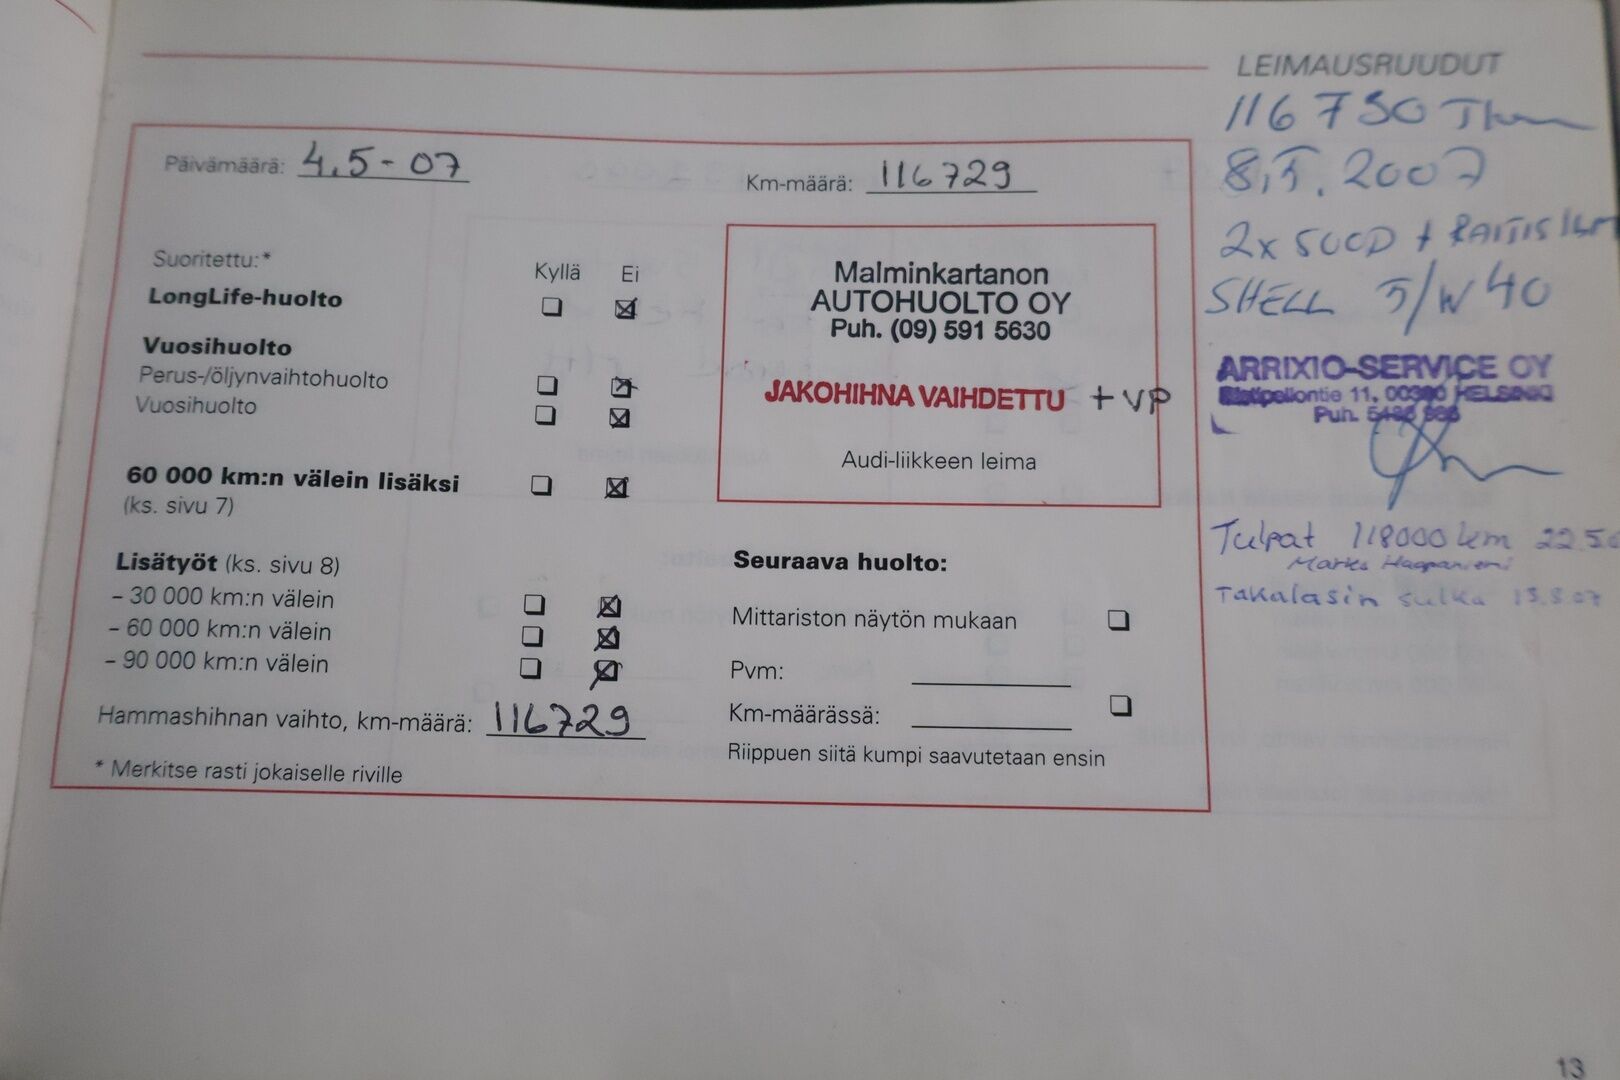 LEIMAUSRUUDUT
Päivämäärä: 4.5-07
Km-määrä: 116729
Suoritettu:*
Kyllä Ei
LongLife-huolto
Vuosihuolto
Perus-/öljynvaihtohuolto
Vuosihuolto
60 000 km:n välein lisäksi
(ks. sivu 7)
Lisätyöt (ks. sivu 8)
– 30 000 km:n välein
– 60 000 km:n välein
– 90 000 km:n välein
Hammashihnan vaihto, km-määrä: 116729
* Merkitse rasti jokaiselle riville
Malminkartanon
AUTOHUOLTO OY
Puh. (09) 591 5630
JAKOHIHNA VAIHDETTU + VP
Audi-liikkeen leima
Seuraava huolto:
Mittariston näytön mukaan
Pvm:
Km-määrässä:
Riippuen siitä kumpi saavutetaan ensin
116730
8.5.2007
2x SUOD + RAITIS ILM
SHELL 5/W 40
ARRIXIO-SERVICE OY
11, HELSINKI
Puh.
Tulpat 118000 km 22.5.0
Marko Haapaniemi
Takalasin sulka
13